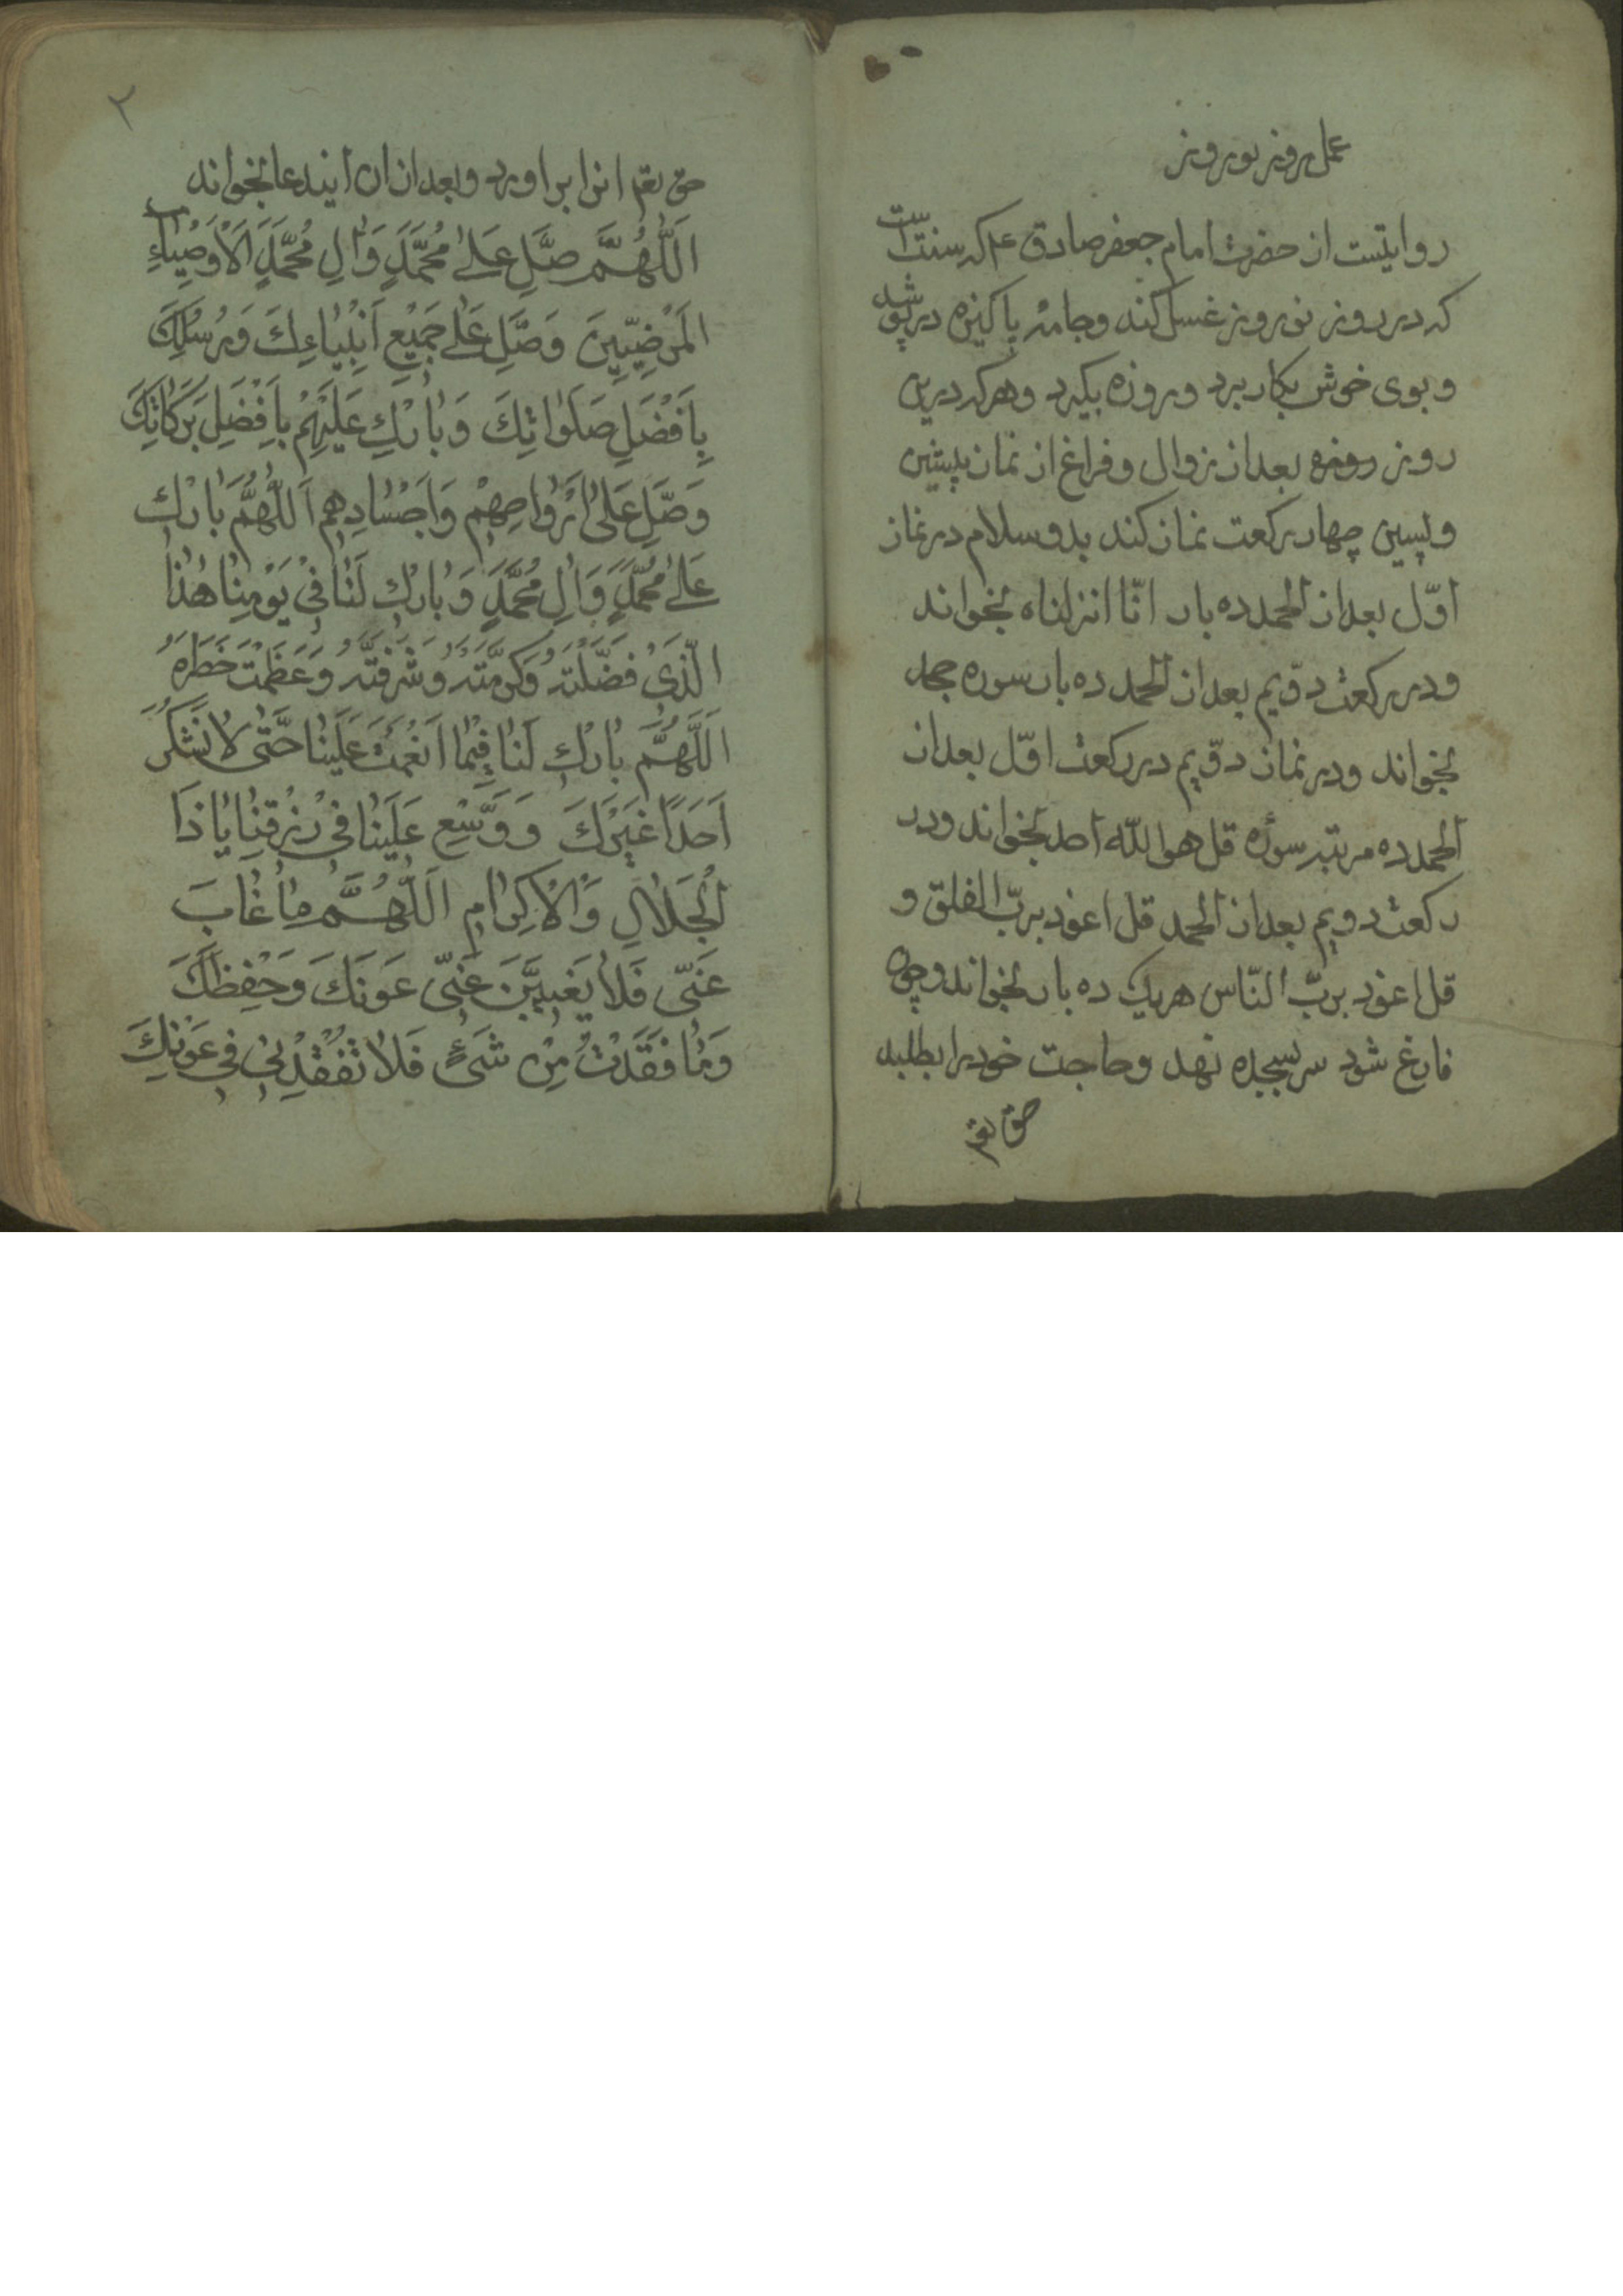 عمل روز نوروز
روایتست از حضرت امام جعفر صادق ع م که سنت است
که در روز نوروز غسل کند و جامه پاکیزه در پوشد
و بوی خوش بکار برد و روزه بگیرد و هر که درین
روز روزه بعد از زوال و فراغ از نماز پیشین
و پسین چهار رکعت نماز کند بدو سلام در نماز
اوّل بعد از الحمد ده بار انّا انزلناه بخواند
و در رکعت دوّیم بعد از الحمد ده بار سوره جحد
بخواند و در نماز دوّیم در رکعت اوّل بعد از
الحمد ده مرتبه سوره قل هو اللّه احد بخواند و در
رکعت دویم بعد از الحمد قل اعوذ بربّ الفلق و
قل اعوذ بربّ النّاس هر یک ده بار بخواند و چون
فارغ شود سر بسجده نهد و حاجت خود را بطلبد
حق تع
٢
حق تعم انرا بر اورد و بعد از ان ایندعا بخواند
اَللّٰهُمَّ صَلِّ عَلىٰ مُحَمَّدٍ وَاٰلِ مُحَمَّدٍ اَلْاَوْصِيٰاءِ
الْمَرْضِيّيٖنَ وَصَلِّ عَلىٰ جَميٖعِ اَنْبِيٰاءِكَ وَرُسُلِكَ
بِاَفْضَلِ صَلَوٰاتِكَ وَبٰارِكْ عَلَيْهِمْ بِاَفْضَلِ بَرَكٰاتِكَ
وَصَلِّ عَلىٰ اَرْوٰاحِهِمْ وَاَجْسٰادِهِمْ اَللّٰهُمَّ بٰارِكْ
عَلىٰ مُحَمَّدٍ وَاٰلِ مُحَمَّدٍ وَبٰارِكْ لَنٰا فيٖ يَوْمِنٰا هٰذٰا
الَّذيٖ فَضَّلْتَهُ وَكَرَّمْتَهُ وَشَرَّفْتَهُ وَعَظَّمْتَ خَطَرَهُ
اَللّٰهُمَّ بٰارِكْ لَنٰا فيٖمٰا اَنْعَمْتَ عَلَيْنٰا حَتّٰى لٰا نَشْكُرَ
اَحَدًا غَيْرَكَ وَ وَسِّعْ عَلَيْنٰا فيٖ رِزْقِنٰا يٰا ذَا
الْجَلٰالِ وَالْاِكْرٰامِ اَللّٰهُمَّ مٰا غٰابَ
عَنّيٖ فَلٰا يَغيٖبَنَّ عَنّيٖ عَوْنَكَ وَحِفْظَكَ
وَمٰا فَقَدْتُ مِنْ شَيْءٍ فَلٰا تَفْقِدْنيٖ فيٖ عَوْنِكَ